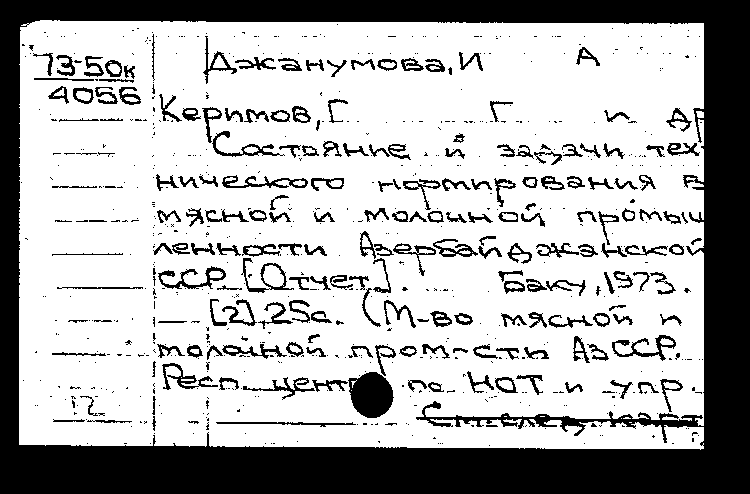 73-50к Джанумова, И А
4056
Керимов, Г Г и др
Состояние и задачи тех
нического нормирования в
мясной и молочной промыш
ленности Азербайджанской
ССР. [Отчет]. Баку, 1973.
[2], 25с. (М-во мясной и
молочной пром-сти АзССР.
Респ. центр по НОТ и упр.
12
См. след. карт